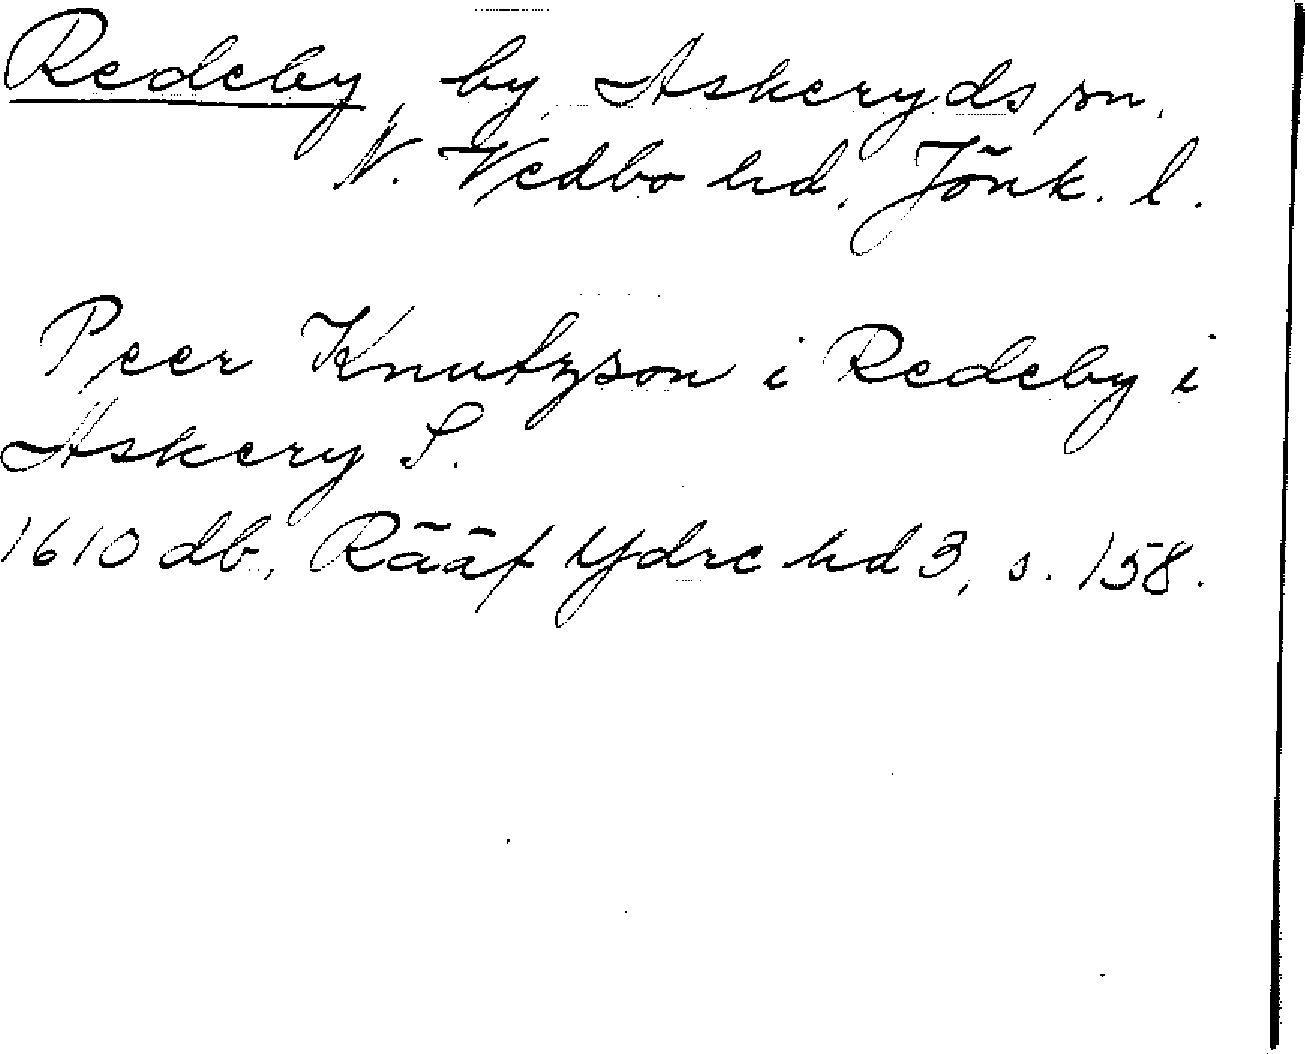 Redeby, by, Askeryds sn.
N. Vedbo hd, Jönk. l.
Peer Knutzson i Redeby i
Askery S.
1610 db, Rääf Ydre hd 3, s. 158.